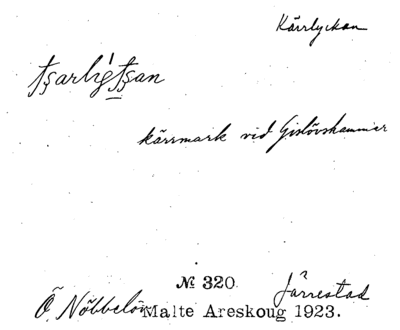 Kärrlyckan
kärrmark vid Gislövshammar
№ 320.
Ö. Nöbbelöv Järrestad
Malte Areskoug 1923.